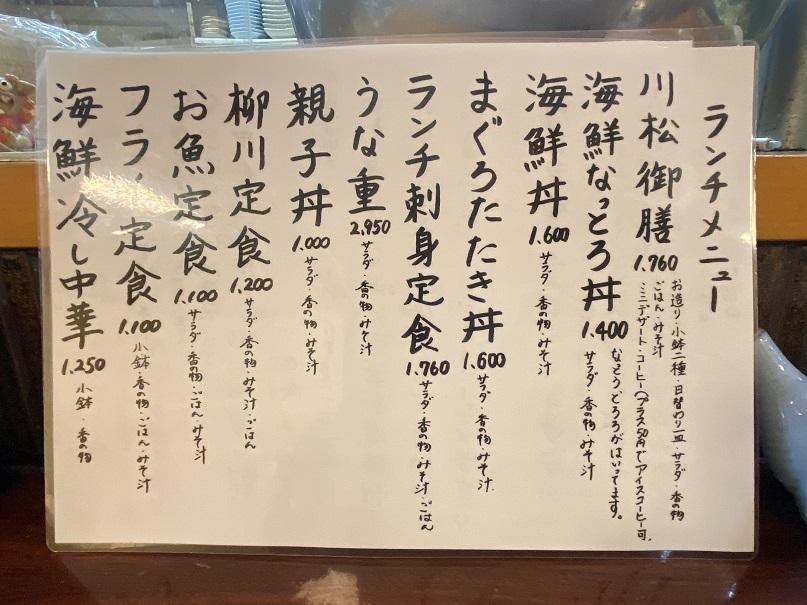 ランチメニュー
川松御膳 1,760
お造り・小鉢二種・日替わり一皿・サラダ・香の物
ごはん・みそ汁
ミニデザート・コーヒー(プラス50円でアイスコーヒー可。
海鮮なっとろ丼 1,400
なっとう、とろろがはいってます。
サラダ・香の物・みそ汁
海鮮丼 1,600
サラダ・香の物・みそ汁
まぐろたたき丼 1,600
サラダ・香の物・みそ汁
ランチ刺身定食 1,760
サラダ・香の物・みそ汁・ごはん
うな重 2,950
サラダ・香の物・みそ汁
親子丼 1,000
サラダ・香の物・みそ汁
柳川定食 1,200
サラダ・香の物・みそ汁・ごはん
お魚定食 1,100
サラダ・香の物・ごはん・みそ汁
フライ定食 1,100
小鉢・香の物・ごはん・みそ汁
海鮮冷し中華 1,250
小鉢 香の物